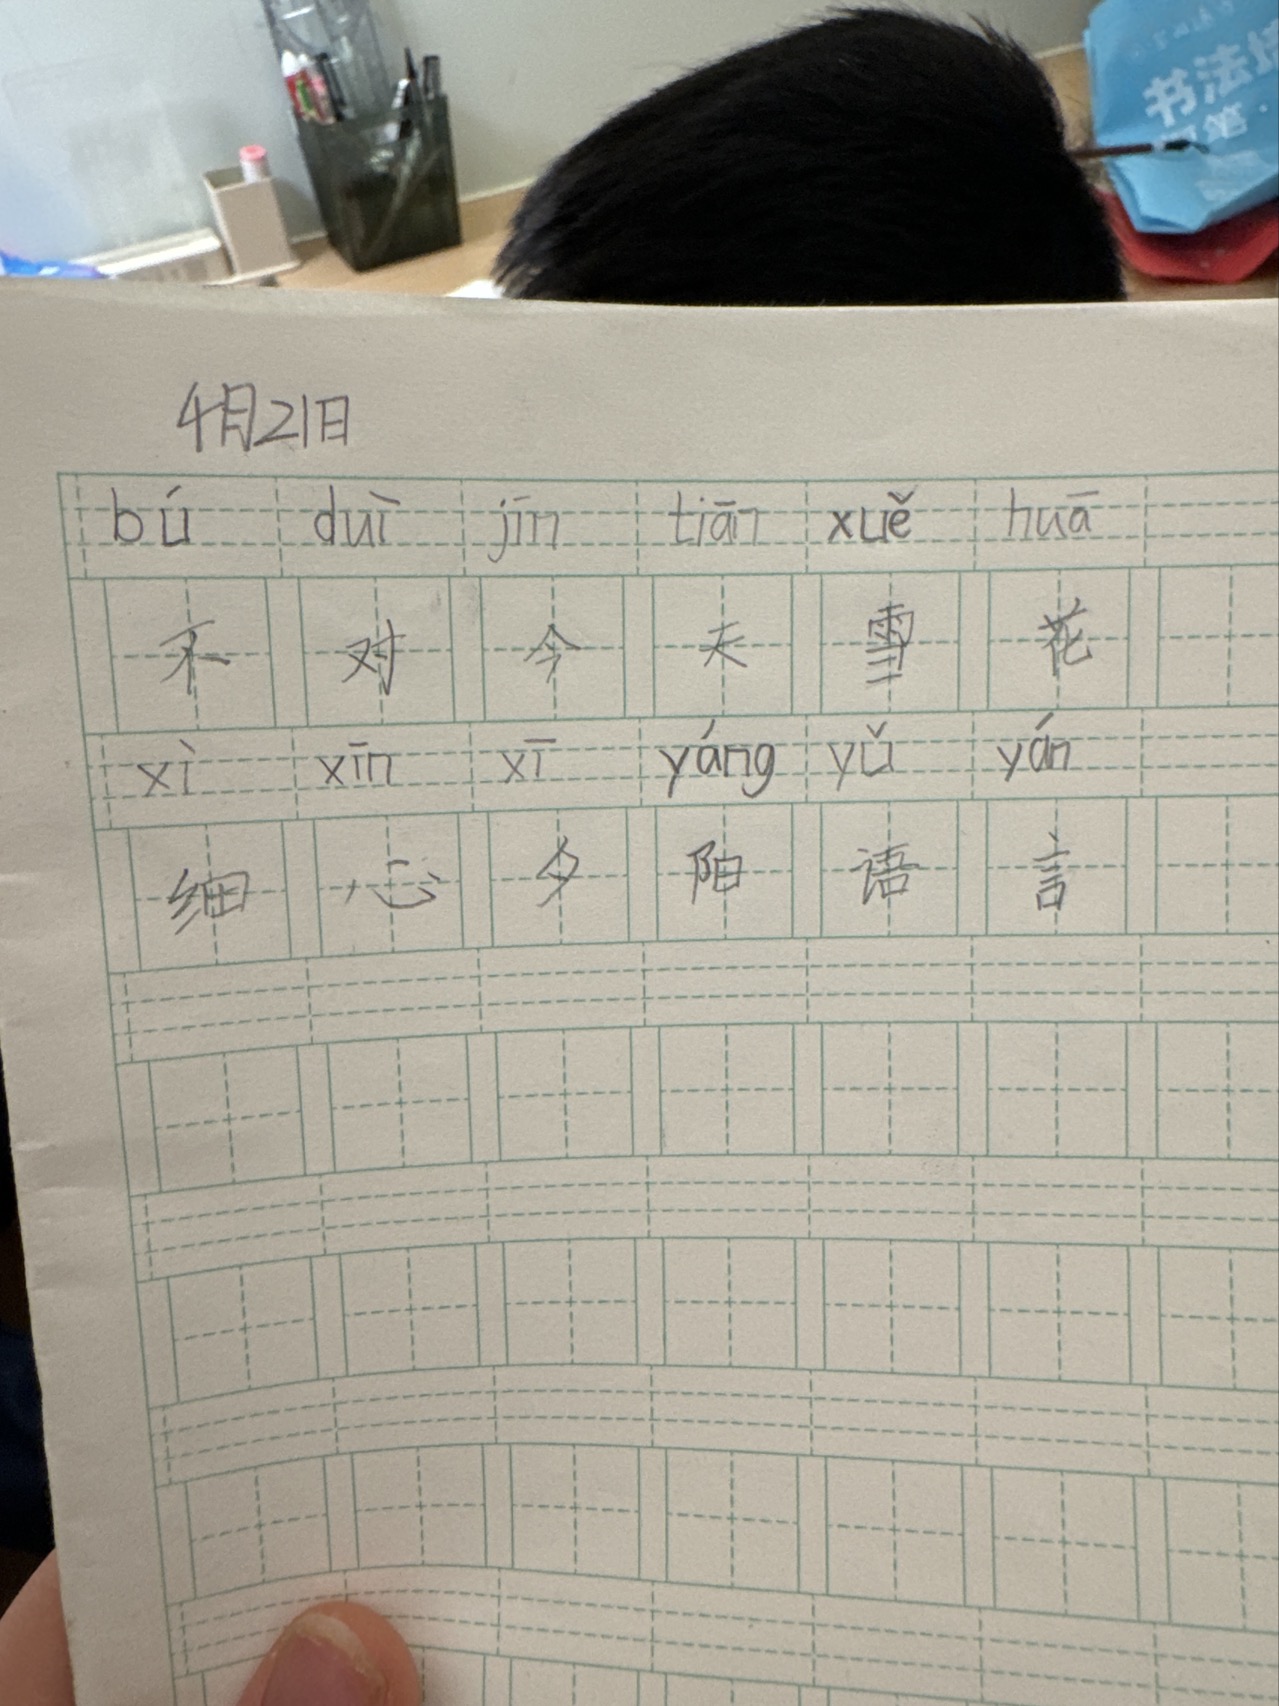 书法培
4月21日
bú duì jīn tiān xuě huā
不 对 今 天 雪 花
xì xīn xī yáng yǔ yán
细 心 夕 阳 语 言